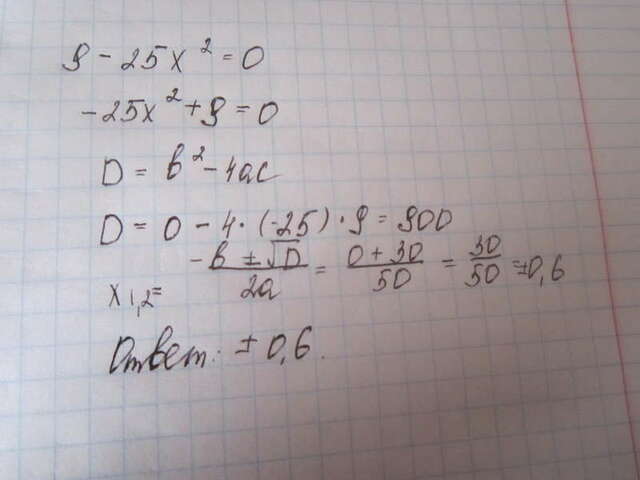 9 - 25x² = 0
-25x² + 9 = 0
D = b² - 4ac
D = 0 - 4·(-25)·9 = 900
x₁,₂ = (-b ± √D)/(2a) = (0 + 30)/50 = 30/50 = ±0,6
Ответ: ± 0,6.